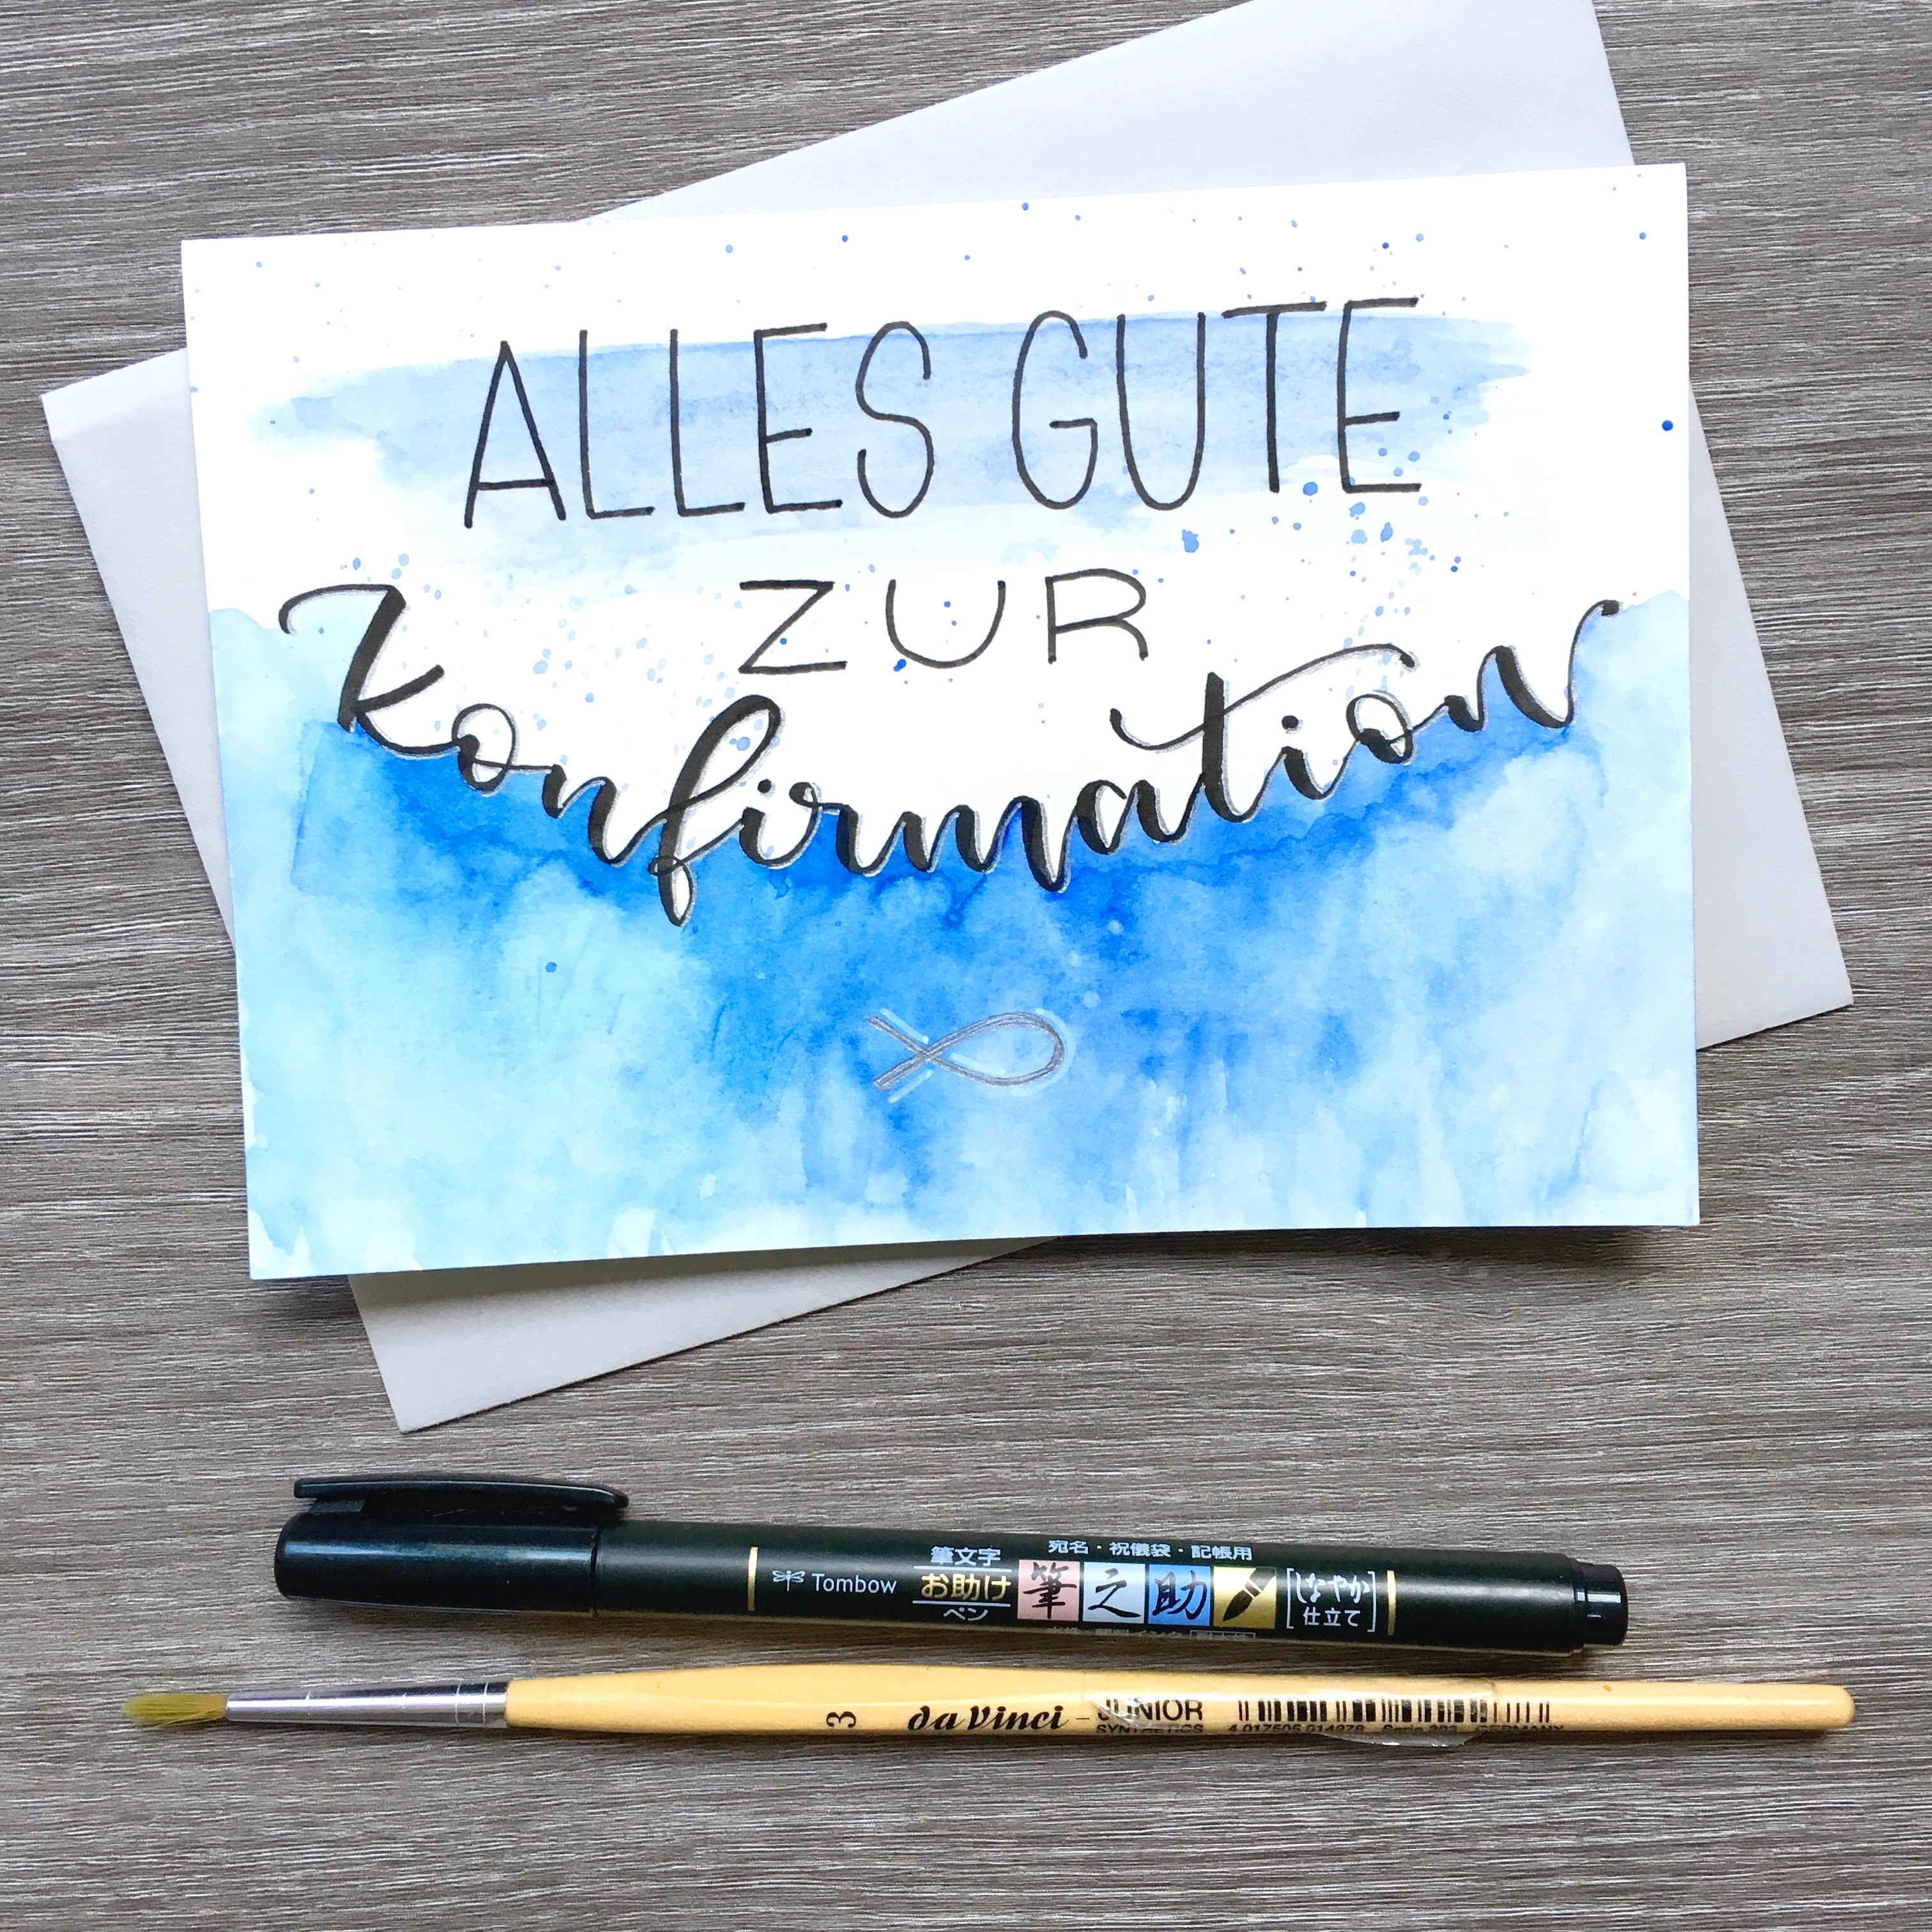 ALLES GUTE
ZUR
Konfirmation
宛名・祝儀袋・記帳用
Tombow
筆文字
お助け
ペン
筆之助
しなやか
仕立て
3 da Vinci – JUNIOR
SYNTHETICS 4 017505 014278 Serie 303 GERMANY